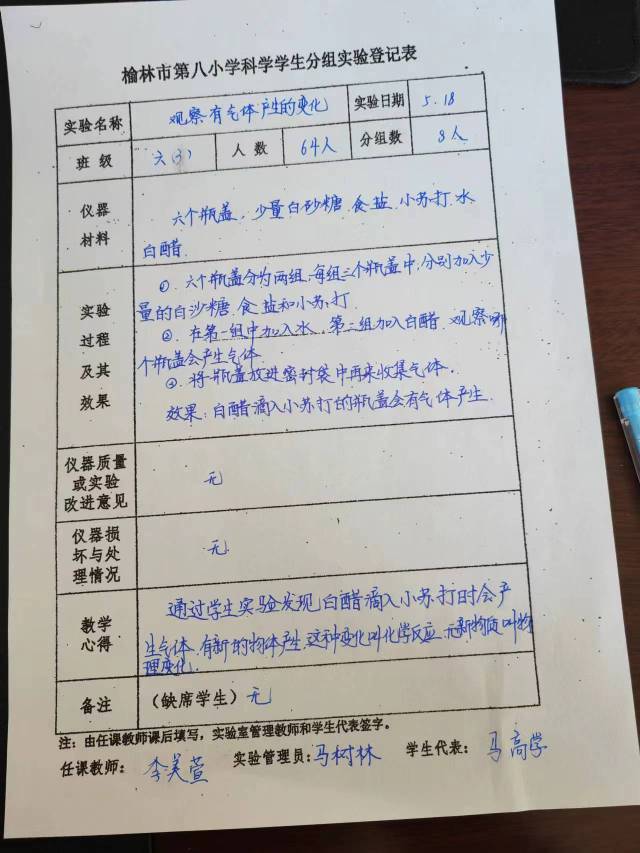 榆林市第八小学科学学生分组实验登记表
实验名称 观察有气体产生的变化 实验日期 5.18
班 级 六(3) 人 数 64人 分组数 8人
仪器
材料
六个瓶盖、少量白砂糖、食盐、小苏打、水
白醋
实验
过程
及其
效果
①、六个瓶盖分为两组、每组三个瓶盖中,分别加入少
量的白沙糖、食盐和小苏打
②、在第一组中加入水、第二组加入白醋、观察哪
个瓶盖会产生气体
③、将瓶盖放进密封袋中再来收集气体.
效果:白醋滴入小苏打的瓶盖会有气体产生.
仪器质量
或实验
改进意见
无
仪器损
坏与处
理情况
无
教学
心得
通过学生实验发现白醋滴入小苏打时会产
生气体、有新的物体产生,这种变化叫化学反应、无新物质叫物
理变化.
备注 (缺席学生)无
注:由任课教师课后填写,实验室管理教师和学生代表签字。
任课教师: 李美萱 实验管理员:马树林 学生代表: 马高学